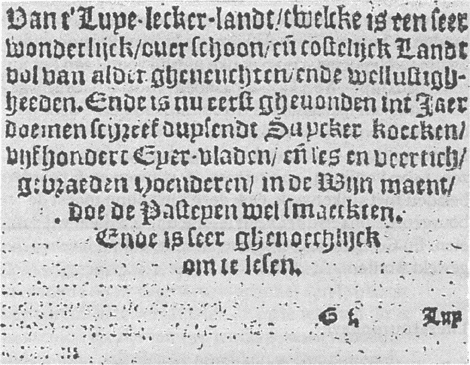 Van t'Luye-lecker-landt/twelcke is een seer
wonderlijck/ouer schoon/ eñ costelijck Landt
vol van alder gheneuchten/ende wellustigh-
heeden. Ende is nu eerst gheuonden int Jaer
doemen schreef duysendt Suycker koecken/
vijf hondert Eyer-vladen/ eñ ses en veertich/
gebraeden Hoenderen/ in de Wijn maent/
doe de Pasteyen wel smaeckten.
Ende is seer ghenoechlijck
om te lesen.
Luy